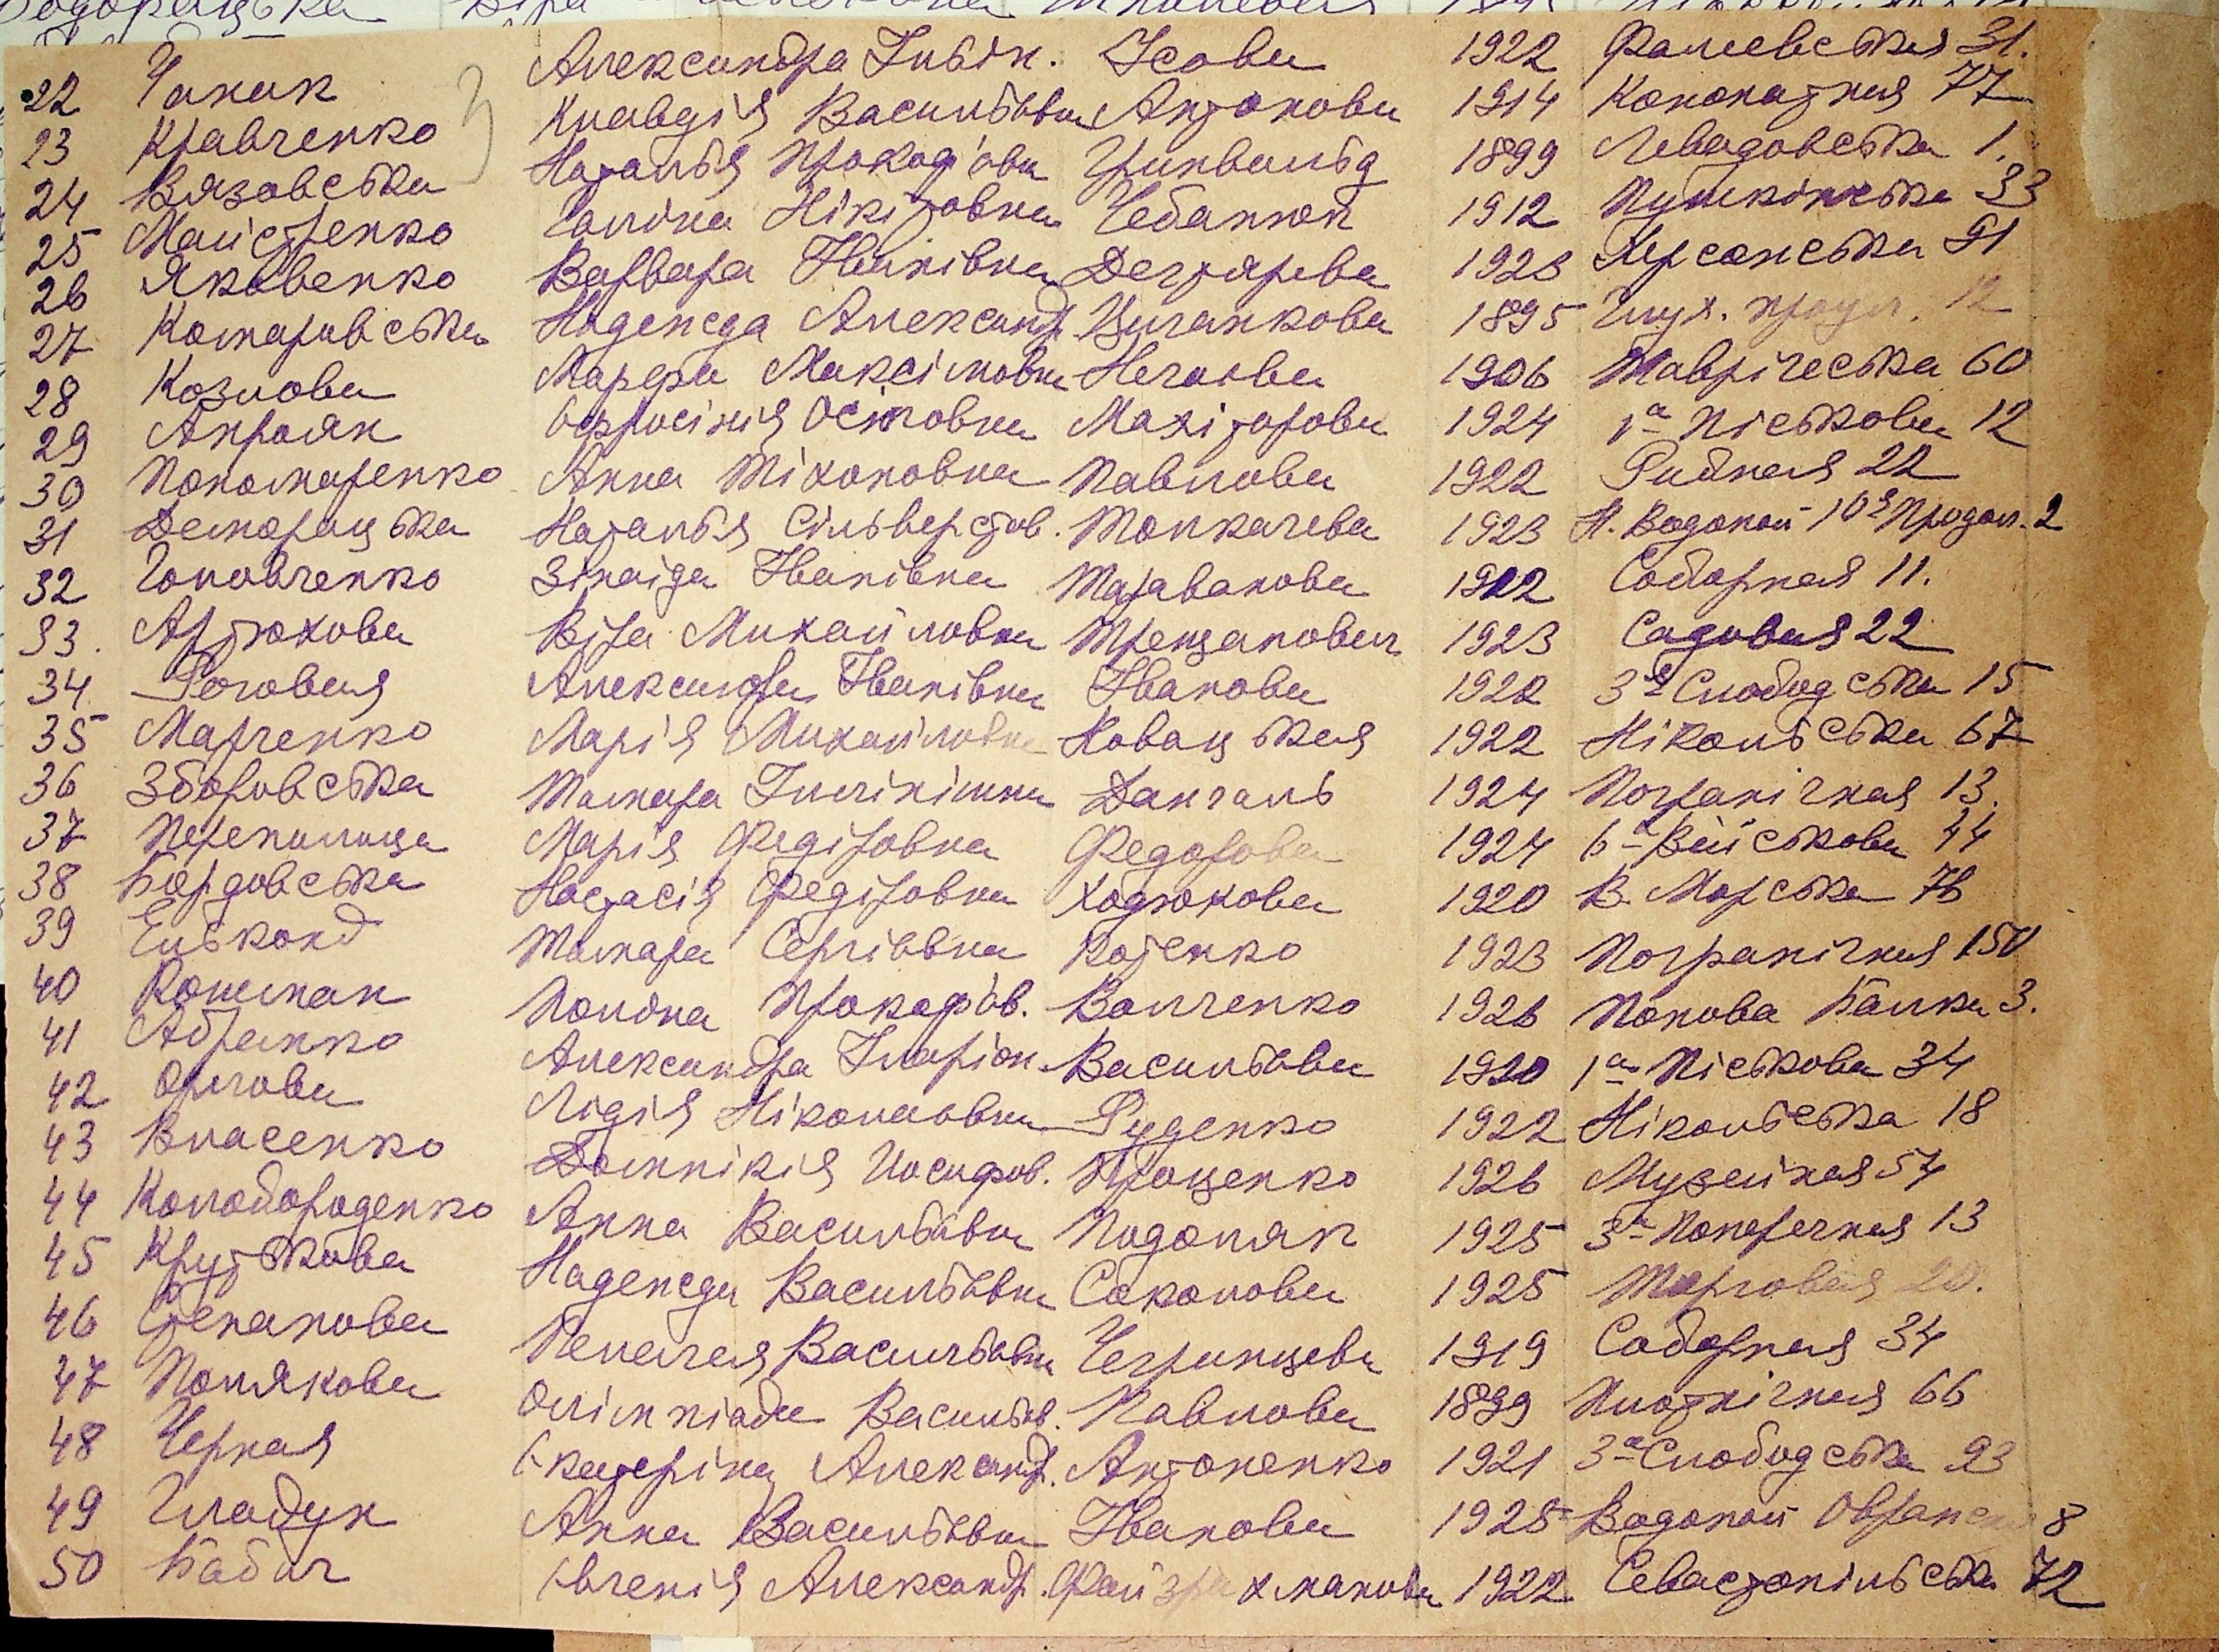 22 Чапак Александра Івбін. Усова 1922 Фалеевская 31.
23 Кравченко Клавдія Васильївна Антонова 1914 Канатная 77
24 Вязовська Наталія Прокоф'ївн Гринвальд 1899 Левадовська 1.
25 Майстренко Галина Нікітовна Чебанюк 1912 Пушкінська 33
26 Яковенко Варвара Іванівна Дегтярева 1923 Херсонська 91
27 Комаровська Надежда Александ. Циганкова 1895 Глух. проул. 12
28 Козлова Марфа Максімовна Нечаєва 1906 Таврічеська 60
29 Андрояк Єфросінія Осіповна Махіторова 1924 1а Піськова 12
30 Пономаренко Анна Тіхоновна Павлова 1922 Рибная 22
31 Деморацька Наталія Сільверстов. Толкачева 1923 Н. Водопой 10я Продол. 2
32 Головченко Зінаїда Іванівна Тараванова 1922 Соборная 11.
33. Артюхова Віра Михайловна Трещанович 1923 Садовая 22
34 Роговая Александра Іванівна Іванова 1922 3я Слобідська 15
35 Марченко Марія Михайловна Ковацькая 1922 Нікольська 67
36 Зборовська Тамара Ілінішна Данчаль 1924 Погранічная 13.
37 Перекопица Марія Федоровна Федорова 1924 6а Військова 44
38 Бордовська Настасія Федоровна Ходюкова 1920 В. Морська 76
39 Ельконд Тамара Сергіївна Котенко 1923 Погранічная 150
40 Кошман Поліна Прокоф'ів. Волченко 1926 Попова Балка 3.
41 Абранко Александра Іларіон. Васильєва 1920 1а Піськова 34
42 Орлова Лідія Ніколаєвна Руденко 1922 Нікольська 18
43 Власенко Домнікія Иосифов. Проценко 1926 Музейная 54
44 Колобороденко Анна Васильївна Подоляк 1925 3а Поперечная 13
45 Крутькова Надежда Васильївна Соколова 1925 Торговая 20.
46 Степанова Пелагея Васильївна Чегринцева 1919 Соборная 34
47 Полякова Олімпіада Васильєв. Павлова 1899 Плотнічная 66
48 Черная Єкатеріна Александ. Антоненко 1921 3а Слобідська 93
49 Гладун Анна Васильївна Іванова 1925 Водопой 8
50 Бабич Євгенія Александ. 1922 Севастопільська 72